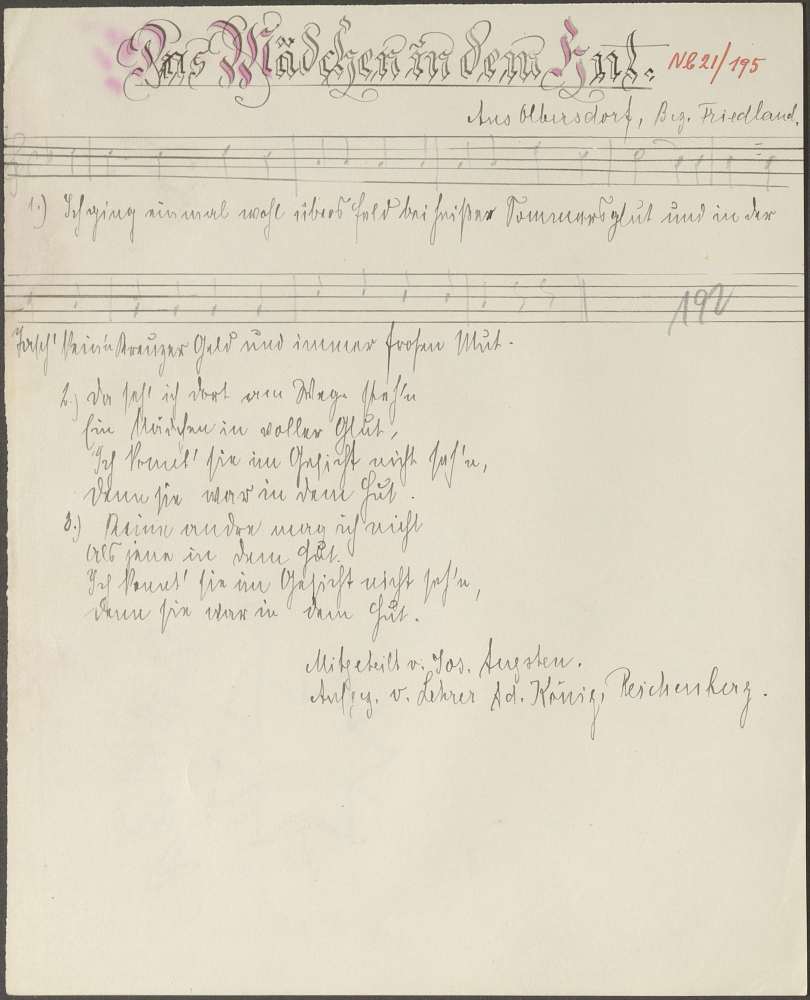 Das Mädchen in dem Hut.
NB 21/195
Aus Olbersdorf, Bez. Friedland.
1.) Ich ging einmal wohl übers Feld bei heißer Sommersglut und in der
192
Tasch' kein'n Kreuzer Geld und immer frohen Mut.
2.) Da seh' ich dort am Wege steh'n
Ein Mädchen in voller Glut,
Ich konnt' sie im Gesicht nicht seh'n,
denn sie war in dem Hut.
3.) Keine andre mag ich nicht
Als jene in dem Hut.
Ich konnt' sie im Gesicht nicht seh'n,
denn sie war in dem Hut.
Mitgeteilt v. Jos. Augsten.
Aufgez. v. Lehrer Ad. König, Reichenberg.